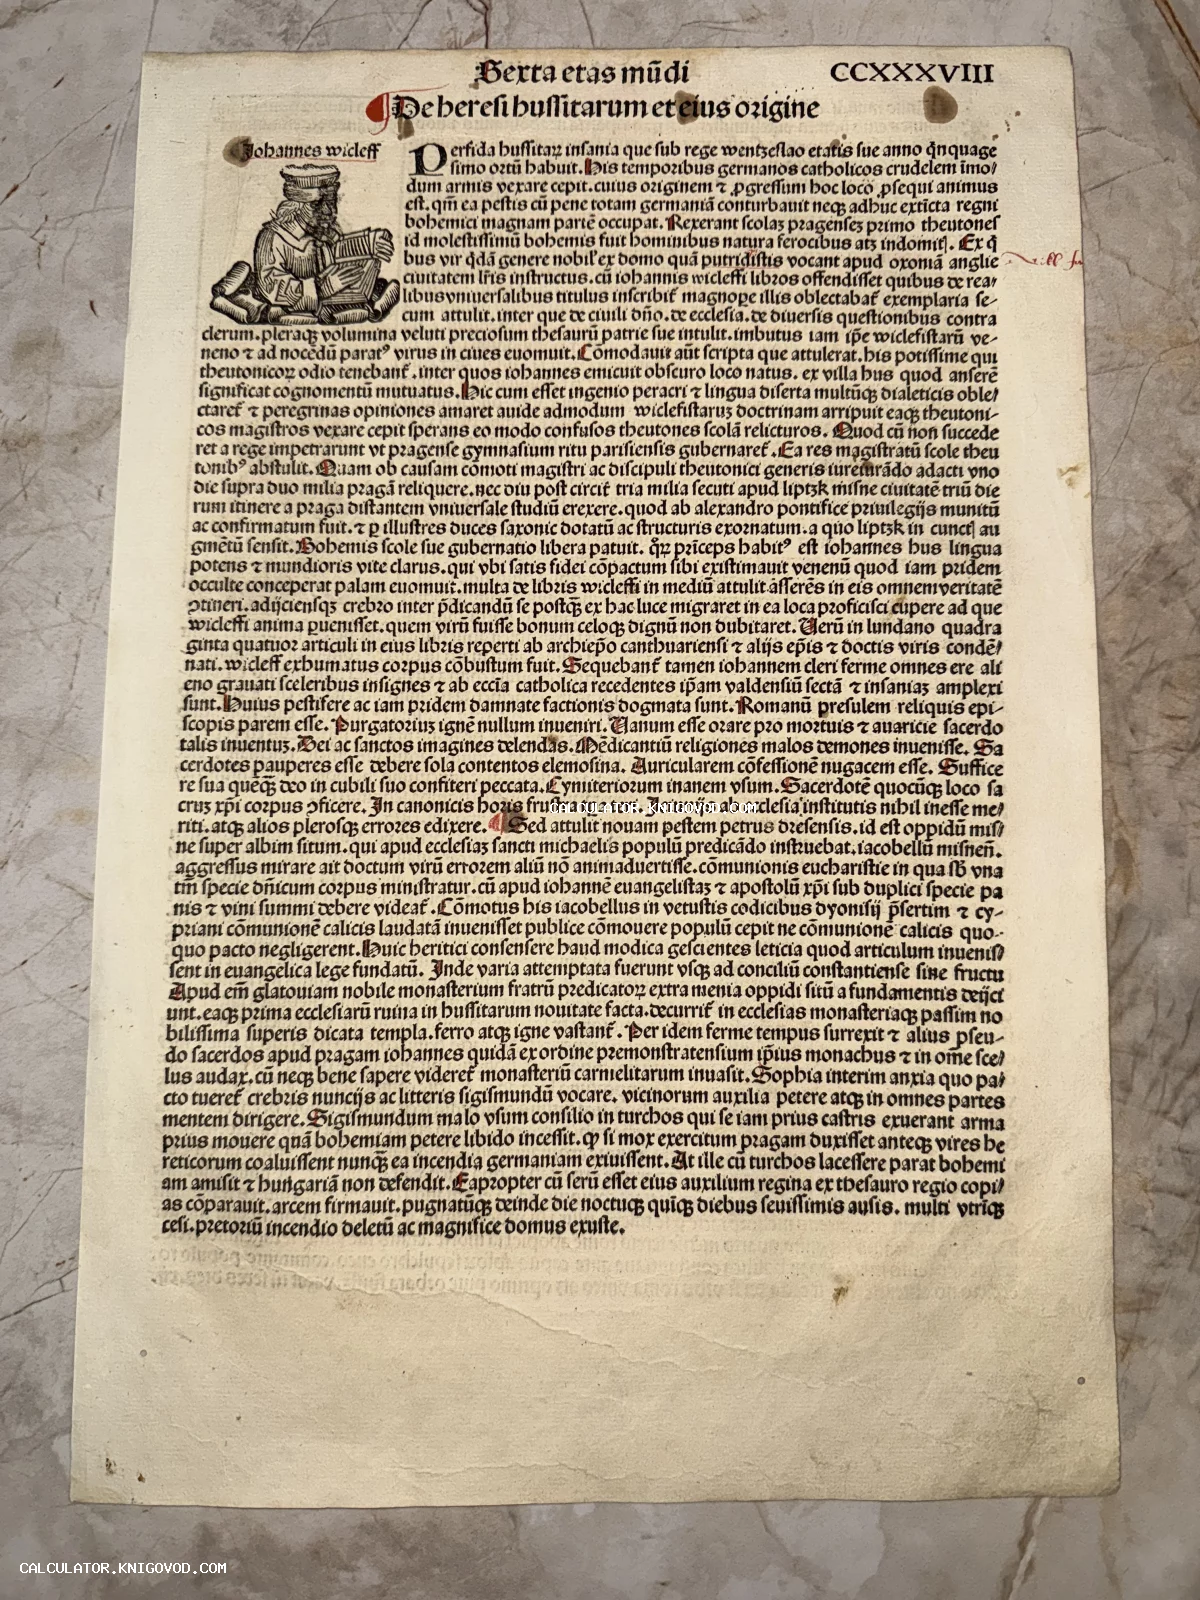 Sexta etas mũdi
CCXXXVIII
De heresi hussitarum et eius origine
Johannes wicleff
Perfida hussitaꝝ insania que sub rege wentzeslao etatis sue anno q̃nquage
simo ortũ habuit. His temporibus germanos catholicos crudelem ĩmo/
dum armis vexare cepit. cuius originem ⁊ ꝓgressum hoc loco ꝓsequi animus
est. qm̃ ea pestis cũ pene totam germaniã conturbauit neqꝫ adhuc extĩcta regni
bohemici magnam partẽ occupat. Rexerant scolaꝫ pragenseꝫ primo theutones
id molestissimũ bohemis fuit hominibus natura ferocibus atꝫ indomitꝭ. Ex q̃
bus vir q̃dã genere nobil' ex domo quã putridistis vocant apud oxoniã anglie
ciuitatem lr̃is instructus. cũ iohannis wicleffi libros offendisset quibus de rea/
libus vniuersalibus titulus inscribit̃ magnoꝑe illis oblectabat̃ exemplaria se-
cum attulit. inter que de ciuili dño. de ecclesia. de diuersis questionibus contra
clerum. pleraqꝫ volumina veluti preciosum thesaurũ patrie sue intulit. imbutus iam ip̃e wiclefistarũ ve-
neno ⁊ ad nocẽdũ paratꝰ virus in ciues euomuit. Cõmodauit aũt scripta que attulerat. his potissime qui
theutonicoꝝ odio tenebant̃. inter quos iohannes emicuit obscuro loco natus. ex villa hus quod anserẽ
significat cognomentũ mutuatus. Hic cum esset ingenio peracri ⁊ lingua diserta multũqꝫ dialeticis oble/
ctaret̃ ⁊ peregrinas opiniones amaret auide admodum wiclefistaruꝫ doctrinam arripuit eaqꝫ theutoni-
cos magistros vexare cepit sperans eo modo confusos theutones scolã relicturos. Quod cũ non succede
ret a rege impetrarunt vt pragense gymnasium ritu parisiensis gubernaret̃. Ea res magistratũ scole theu
tonibꝰ abstulit. Quam ob causam cõmoti magistri ac discipuli theutonici generis iureiurãdo adacti vno
die supra duo milia pragã reliquere. nec diu post circit̃ tria milia secuti apud liptzk misne ciuitatẽ triũ die
rum itinere a praga distantem vniuersale studiũ erexere. quod ab alexandro pontifice priuilegijs munitũ
ac confirmatum fuit. ⁊ ꝑ illustres duces saxonic dotatũ ac structuris exornatum. a quo liptzk in cunctꝭ au
gmẽtũ sensit. Bohemis scole sue gubernatio libera patuit. q̃ꝝ prĩceps habitꝰ est iohannes hus lingua
potens ⁊ mundioris vite clarus. qui vbi satis fidei cõpactum sibi existimauit venenũ quod iam pridem
occulte conceperat palam euomuit. multa de libris wicleffi in mediũ attulit asserẽs in eis omnem veritatẽ
ↄtineri. adijciensqꝫ crebro inter p̃dicandũ se postq̃ꝫ ex hac luce migraret in ea loca proficisci cupere ad que
wicleffi anima ꝑuenisset. quem virũ fuisse bonum celoqꝫ dignũ non dubitaret. Uerũ in lundano quadra
ginta quatuor articuli in eius libris reperti ab archiep̃o canthuariensi ⁊ alijs ep̃is ⁊ doctis viris condẽ/
nati. wicleff exhumatus corpus cõbustum fuit. Sequebant̃ tamen iohannem cleri ferme omnes ere ali
eno grauati sceleribus insignes ⁊ ab eccĩa catholica recedentes ip̃am valdensiũ sectã ⁊ insaniaꝫ amplexi
sunt. Huius pestifere ac iam pridem damnate factionis dogmata sunt. Romanũ presulem reliquis epi-
scopis parem esse. Purgatoriuꝫ ignẽ nullum inueniri. Uanum esse orare pro mortuis ⁊ auaricie sacerdo
talis inuentuꝫ. Dei ac sanctos imagines delendas. Mẽdicantiũ religiones malos demones inuenisse. Sa
cerdotes pauperes esse debere sola contentos elemosina. Auricularem cõfessionẽ nugacem esse. Suffice
re sua quẽqꝫ deo in cubili suo confiteri peccata. Cymiteriorum inanem vsum. Sacerdotẽ quocũqꝫ loco sa
cruꝫ xp̃i corpus ↄficere. In canonicis horis ecclesia institutis nihil inesse me/
riti. atqꝫ alios plerosqꝫ errores edixere. Sed attulit nouam pestem petrus dresensis. id est oppidũ mis/
ne super albim situm. qui apud ecclesiaꝫ sancti michaelis populũ predicãdo instruebat. iacobellũ misneñ.
aggressus mirare ait doctum virũ errorem aliũ nõ animaduertisse. cõmunionis eucharistie in qua sb̃ vna
tm̃ specie dñicum corpus ministratur. cũ apud iohannẽ euangelistaꝫ ⁊ apostolũ xp̃i sub duplici specie pa
nis ⁊ vini summi debere videat̃. Cõmotus his iacobellus in vetustis codicibus dyonisij p̃sertim ⁊ cy-
priani cõmunionẽ calicis laudatã inuenisset publice cõmouere populũ cepit ne cõmunionẽ calicis quo-
quo pacto negligerent. Huic heritici consensere haud modica gescientes leticia quod articulum inuenis/
sent in euangelica lege fundatũ. Inde varia attemptata fuerunt vsqꝫ ad conciliũ constantiense sine fructu
Apud em̃ glatouiam nobile monasterium fratrũ predicatoꝝ extra menia oppidi sitũ a fundamentis deijci
unt. eaqꝫ prima ecclesiarũ ruina in hussitarum nouitate facta. decurrit̃ in ecclesias monasteriaqꝫ passim no
bilissima superis dicata templa. ferro atqꝫ igne vastant̃. Per idem ferme tempus surrexit ⁊ alius pseu-
do sacerdos apud pragam iohannes quidã ex ordine premonstratensium ip̃ius monachus ⁊ in om̃e sce/
lus audax. cũ neqꝫ bene sapere videret̃ monasteriũ carmelitarum inuasit. Sophia interim anxia quo pa/
cto tueret̃ crebris nuncijs ac litteris sigismundũ vocare. vicinorum auxilia petere atqꝫ in omnes partes
mentem dirigere. Sigismundum malo vsum consilio in turchos qui se iam prius castris exuerant arma
prius mouere quã bohemiam petere libido incessit. ꝙ si mox exercitum pragam duxisset anteqꝫ vires he
reticorum coaluissent nunq̃ꝫ ea incendia germaniam exiuissent. At ille cũ turchos lacessere parat bohemi
am amisit ⁊ hungariã non defendit. Eapropter cũ serũ esset eius auxilium regina ex thesauro regio copi/
as cõparauit. arcem firmauit. pugnatũqꝫ deinde die noctuqꝫ quĩqꝫ diebus seuissimis ausis. multi vtriqꝫ
cesi. pretoriũ incendio deletũ ac magnifice domus exuste.
CALCULATOR.KNIGOVOD.COM
CALCULATOR.KNIGOVOD.COM